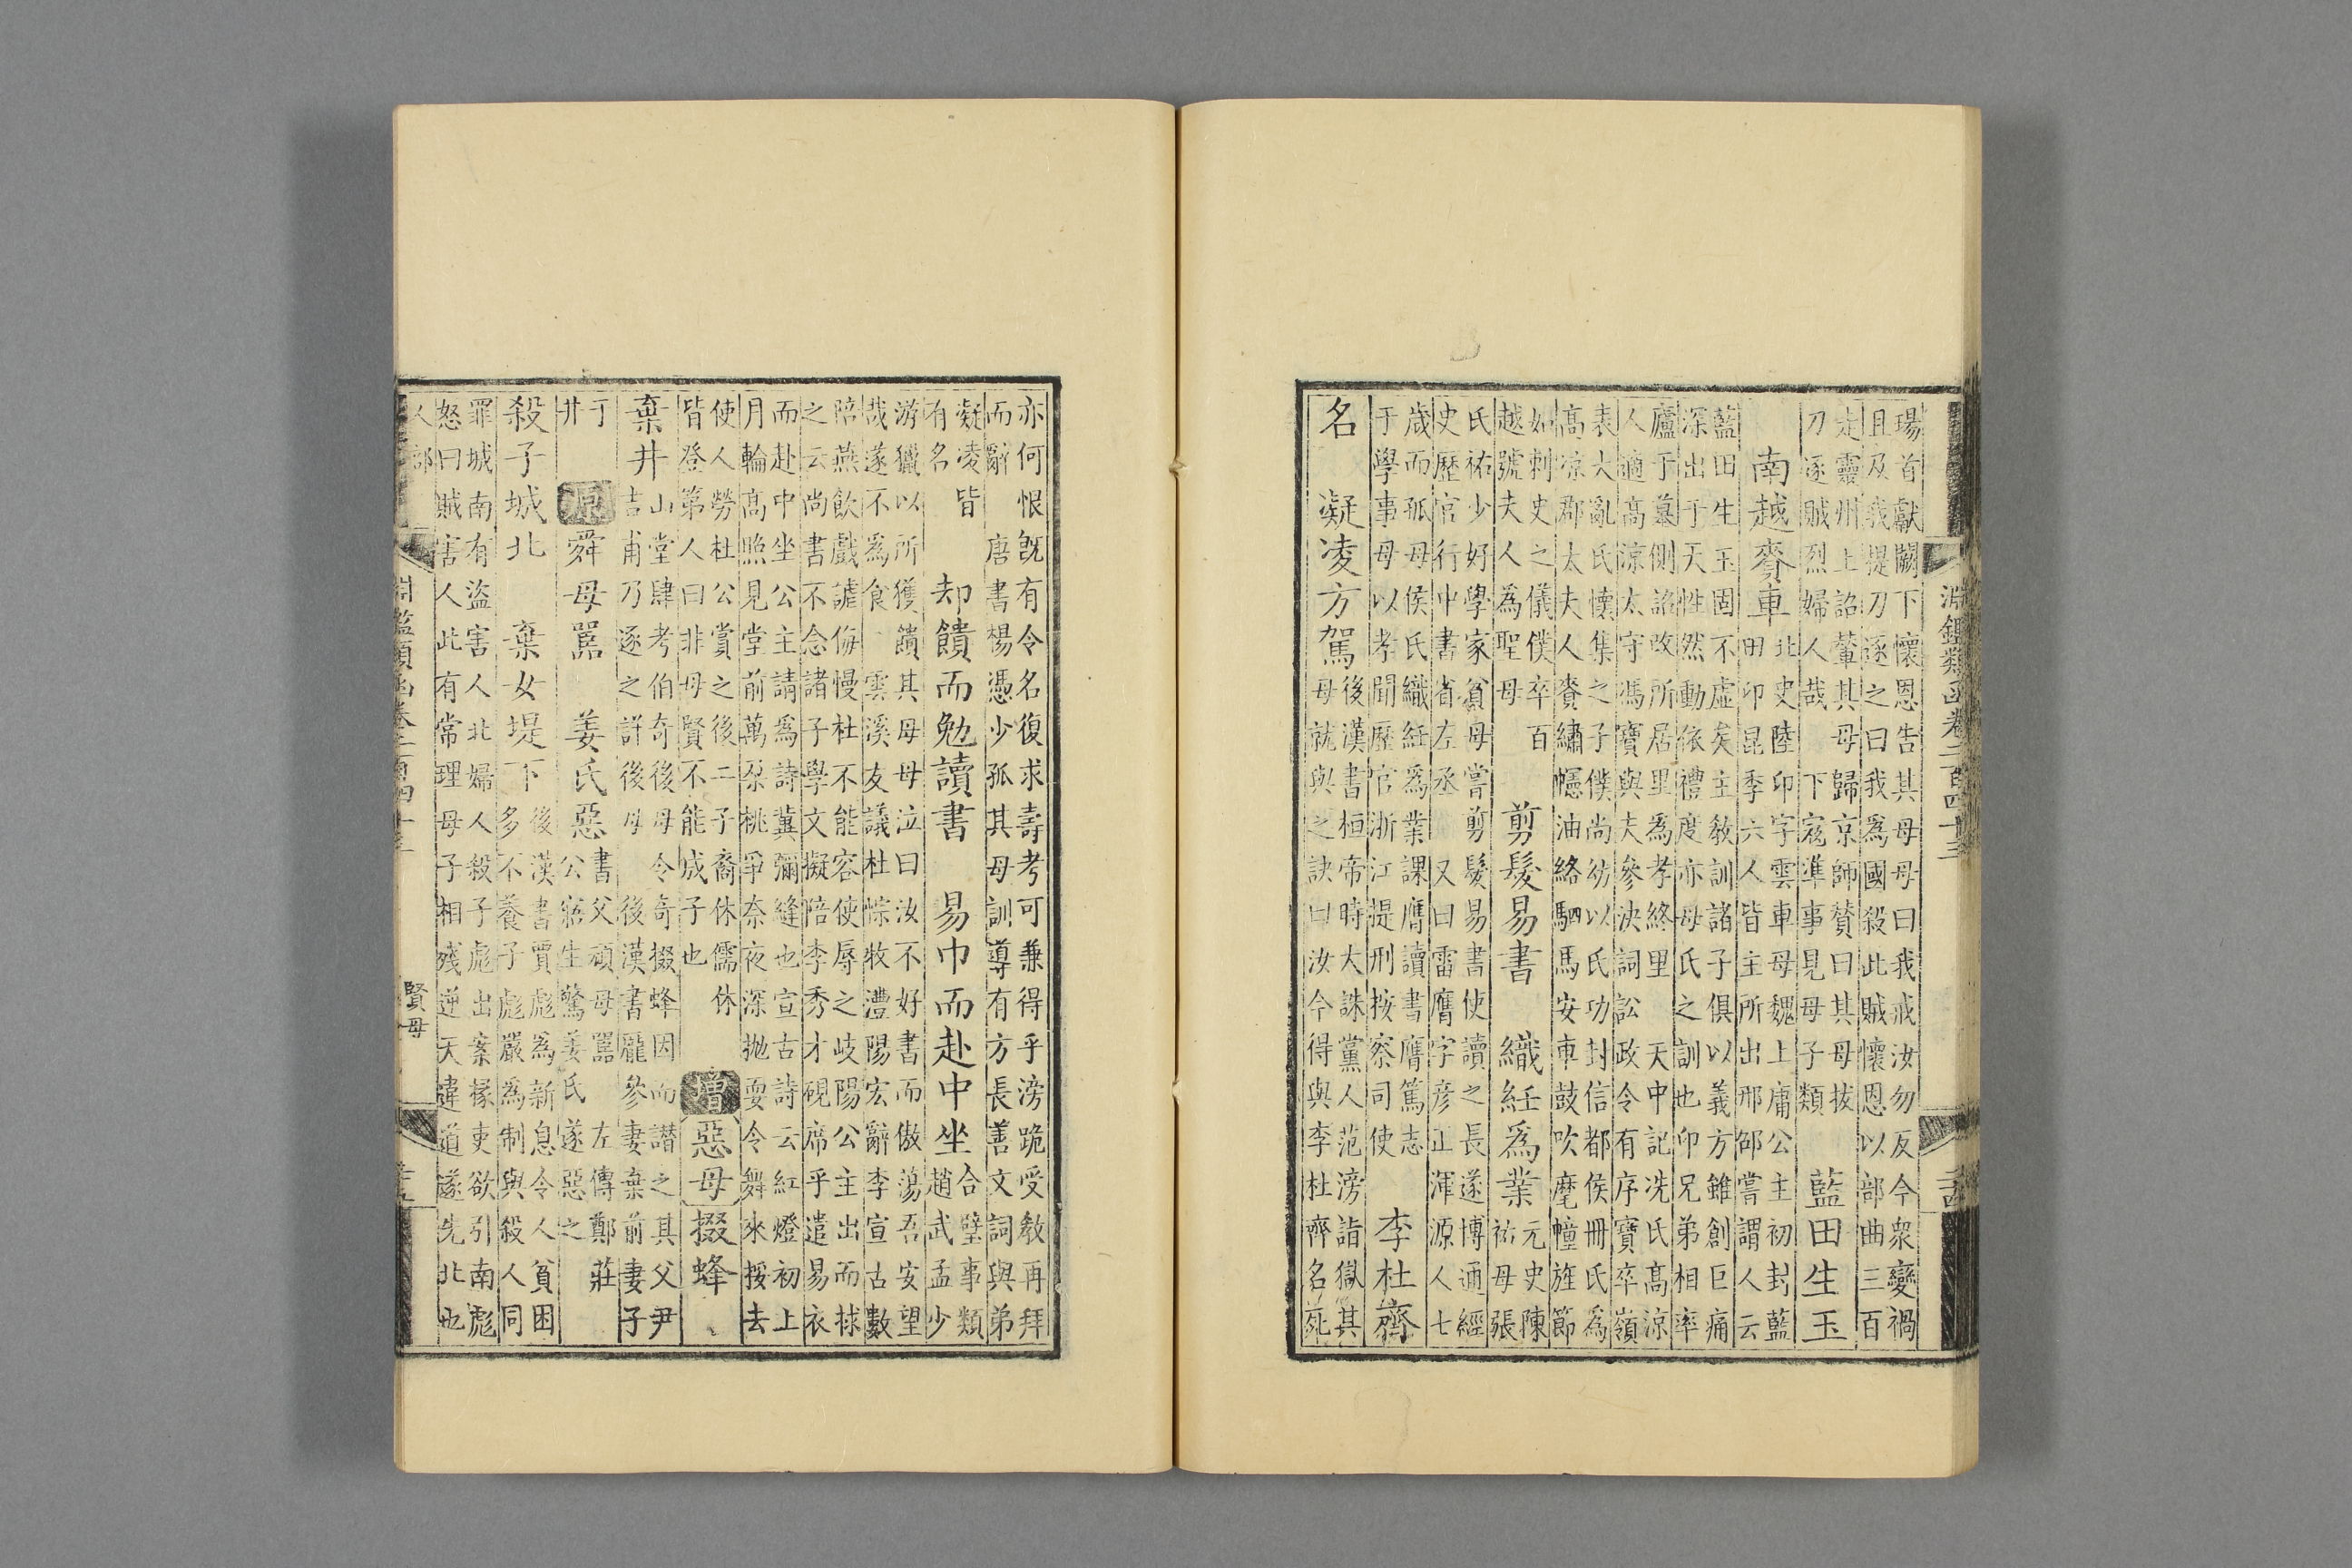 淵鑑類函卷二百四十三
瑒首獻闕下懷恩告其母母曰我戒汝勿反今衆變禍
且及我提刀逐之曰我爲國殺此賊懷恩以部曲三百
走靈州上詔輦其母歸京師賛曰其母拔
刀逐賊烈婦人哉　下寇準事見母子類
藍田生玉
南越賫車
北史陸卬字雲車母魏上庸公主初封藍
田卬昆季六人皆主所出邢邵嘗謂人云
藍田生玉固不虛矣主敎訓諸子俱以義方雖創巨痛
深出于天性然動依禮度亦母氏之訓也卬兄弟相率
廬于墓側詔改所居里爲孝終里　天中記冼氏高涼
人適高涼太守馮寳與夫參決詞訟政令有序寳卒嶺
表大亂氏懷集之子僕尚幼以氏功封信都侯冊氏爲
高凉郡太夫人賫繡幰油絡駟馬安車鼓吹麾幢旌節
如刺史之儀僕卒百
越號夫人爲聖母
剪髮易書　織紝爲業
元史陳
祐母張
氏祐少好學家貧母嘗剪髮易書使讀之長遂博通經
史歷官行中書省左丞　又曰雷膺字彦正渾源人七
歲而孤母侯氏織紝爲業課膺讀書膺篤志
于學事母以孝聞歷官浙江提刑按察司使
李杜齊
名　凝凌方駕
後漢書桓帝時大誅黨人范滂詣獄其
母就與之訣曰汝今得與李杜齊名死
亦何恨既有令名復求壽考可兼得乎滂跪受敎再拜
而辭　唐書楊憑少孤其母訓導有方長善文詞與弟
凝凌皆
有名
却饋而勉讀書　易巾而赴中坐
合璧事類
趙武孟少
游獵以所獲饋其母母泣曰汝不好書而傲蕩吾安望
哉遂不爲食　雲溪友議杜悰牧澧陽宏辭李宣古數
陪燕飲戲謔侮慢杜不能容使辱之岐陽公主出而捄
之云尚書不念諸子學文擬陪李秀才硯席乎遣易衣
而赴中坐公主請爲詩冀彌縫也宣古詩云紅燈初上
月輪高照見堂前萬朶桃爭奈夜深抛耍令舞來挼去
使人勞杜公賞之後二子裔休儒休
皆登第人曰非母賢不能成子也
增　惡母　掇蜂
棄井
山堂肆考伯奇後母令奇掇蜂因而譛之其父尹
吉甫乃逐之詳後母　後漢書龐參妻棄前妻子
于
井
原　舜母嚚　姜氏惡
書父頑母嚚　左傳鄭莊
公寤生驚姜氏遂惡之
殺子城北　棄女堤下
後漢書賈彪爲新息令人貧困
多不養子彪嚴爲制與殺人同
罪城南有盜害人北婦人殺子彪出案掾吏欲引南彪
怒曰賊害人此有常理母子相殘逆天違道遂先北也
人部
淵鑑類函卷二百四十三
賢母